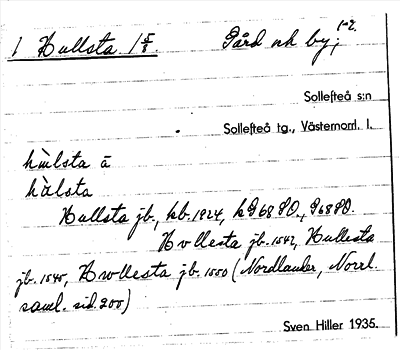 1 Hullsta 1 5/8. Gård och by; 1-2.
Sollefteå s:n
Sollefteå tg., Västernorrl. l.
hùlsta ā
hùlsta
Hullsta jb., kb. 1924, kG 68 SO., G68SO.
Hvllesta jb. 1542, Hullesta
jb. 1545, Hwllesta jb. 1550 (Nordlander, Norrl.
saml. sid. 200)
Sven Hiller 1935.